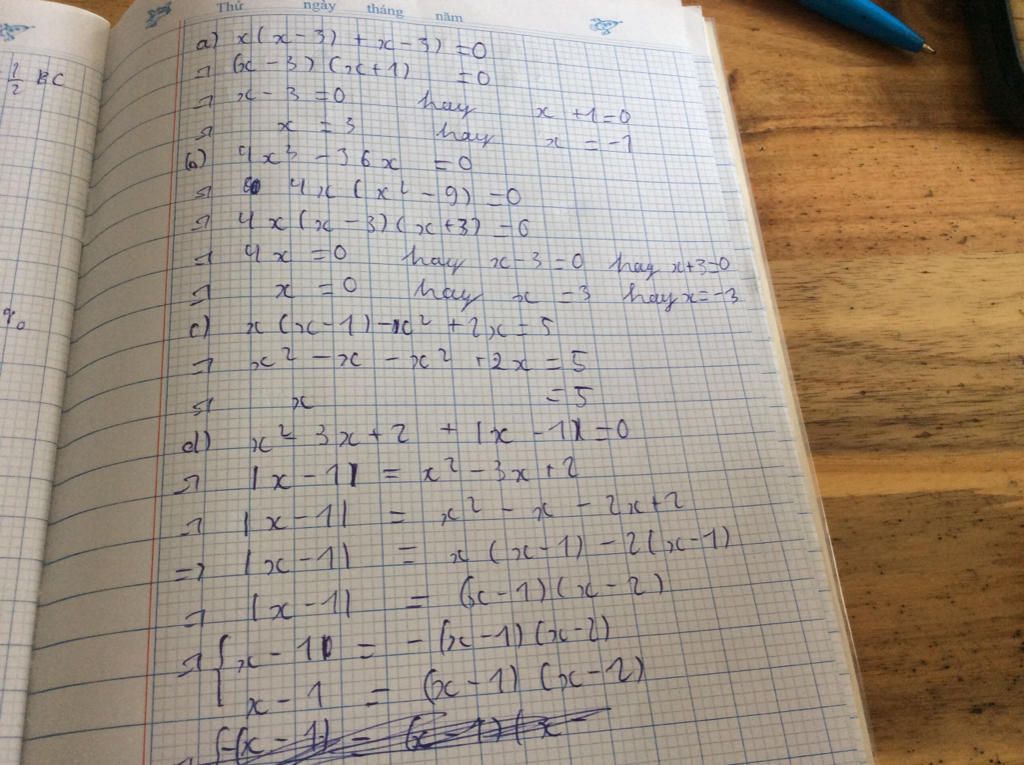 Thứ ngày tháng năm
1/2 BC
a) x(x-3) + x-3) = 0
=> (x-3)(x+1) = 0
=> x-3 = 0 hay x+1=0
=> x = 3 hay x = -1
b) 4x³ - 36x = 0
=> 4x(x² - 9) = 0
=> 4x(x-3)(x+3) = 0
=> 4x = 0 hay x-3 = 0 hay x+3=0
=> x = 0 hay x = 3 hay x = -3
c) x(x-1) - x² + 2x = 5
=> x² - x - x² + 2x = 5
=> x = 5
d) x² 3x + 2 + |x - 1| = 0
=> |x-1| = x² - 3x + 2
=> |x-1| = x² - x - 2x + 2
=> |x-1| = x(x-1) - 2(x-1)
=> |x-1| = (x-1)(x-2)
=> { x-1 = -(x-1)(x-2)
x-1 = (x-1)(x-2)